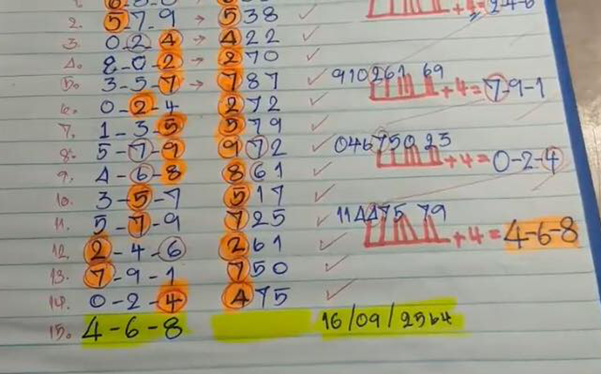 2. 5-7-9 → 538
3. 0-2-4 → 422
4. 8-0-2 → 270
5. 3-5-7 → 787 ✓ 910261 69 +4=7-9-1
6. 0-2-4 272 ✓
7. 1-3-5 579 ✓
8. 5-7-9 972 ✓ 046750 23 +4=0-2-4
9. 4-6-8 861 ✓
10. 3-5-7 517 ✓
11. 5-7-9 725 ✓ 114475 79 +4=4-6-8
12. 2-4-6 261 ✓
13. 7-9-1 750 ✓
14. 0-2-4 475 ✓
15. 4-6-8 16/09/2564